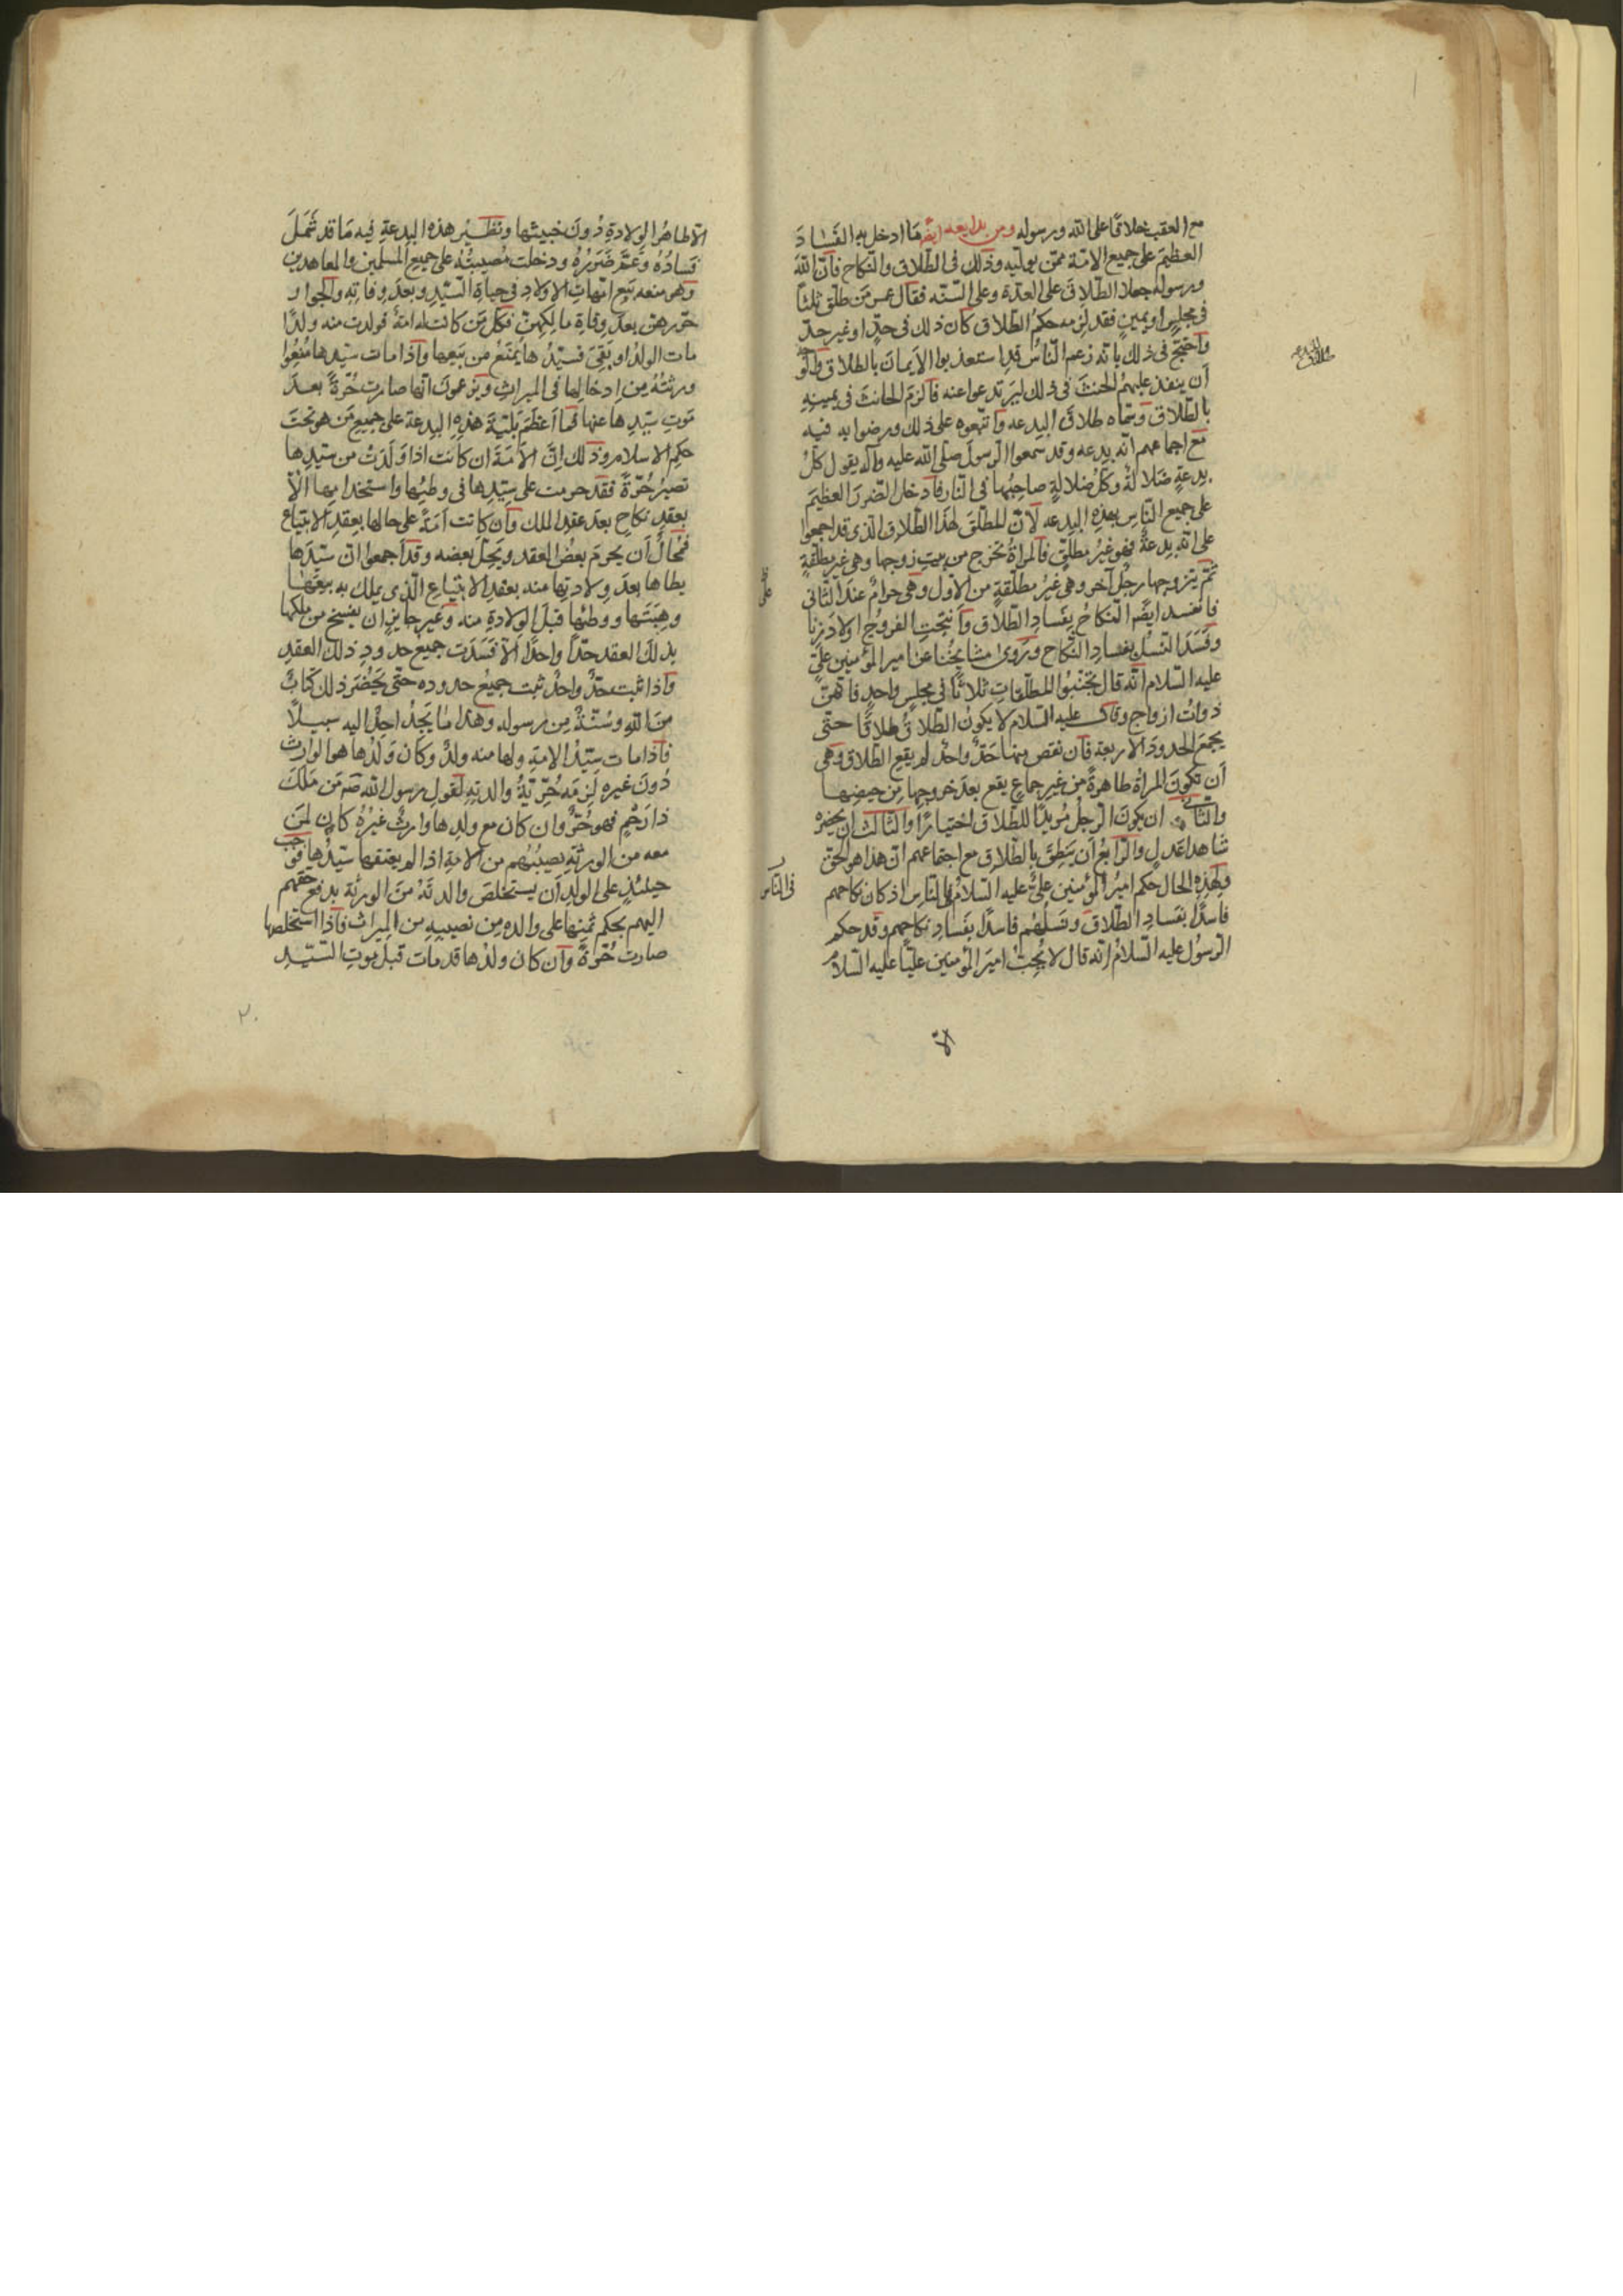 مع العقب خلافًا على الله ورسوله ومن بدايعه ايضً مَا ادخل به الفَسادَ
العظيمَ على جميع الامّة ممّن يوليه وذلك فى الطّلاق والنّكاح فانّ اللهَ
ورسوله جعلا الطّلاقَ على العدّة وعلى السّنّه فقال عمر مَن طلّق ثلثًا
فى مجلسٍ او يمينٍ فقد لزمه حكمُ الطّلاق كان ذلك فى حدٍّ او غير حدٍّ
واحتجّ فى ذلك بانّه زعم النّاسُ قد استعذبوا الايمانَ بالطلاق
اَن ينفذ عليهمُ الحنثَ فى ذلك ليَرتدعوا عنه فالزمَ الحانثَ فى يمينهِ
بالطّلاق وسمّاه طلاقَ البدعه واتّبعوه على ذلك ورضوا به فيه
مع اجماعهم انّه بدعه وقد سمعوا الرّسولَ صلّى الله عليه وآله يقول كلُّ
بدعةٍ ضَلالةٌ وكلّ ضلالةٍ صاحبُها فى النّار فادخل الضّررَ العظيمَ
على جميع النّاس بهذِهِ البدعه لانّ المطلّقَ لهذا الطّلاق الّذى قد اجمعوا
على انّه بدعةٌ فهو غيرُ مطلّقٍ فالمراةُ تخرج من بيتِ زوجها وهى غير مطلّقةٍ
ثمّ يتزوجها رجُل آخر وهى غيرُ مطلّقةٍ من الاوّل وهى حرامٌ عندَ الثّانى
فانفسد ايضًا النّكاحُ بفسادِ الطّلاق واَنتجَتِ الفروجُ اولادَ زنًا
وفَسَدَ النّسل بفسادِ النّكاح ورَوى مشايخُنا عن امير المؤمنين علىّ
عليه السّلام انّه قال تجنّبوا المطلّقات ثلاثًا فى مجلسٍ واحدٍ فانّهنّ
ذواتُ ازواج وقال عليه السّلام لا يكونُ الطّلاقُ طلاقًا حتّى
يجمعَ الحدودَ الاربعة فان نقص منها حَدٌّ واحدٌ لم يقع الطّلاق وهى
اَن تكونَ المراةُ طاهرةً من غير جماعٍ يقع بعدَ خروجها مِن حيضها
والثانى ان يكونَ الرّجلُ مُريدًا للطّلاق اختيارًا والثالث ان يحضره
شاهدا عَدلٍ والرّابعُ اَن يَنطِقَ بالطّلاق مع اجتماعهم انّ هذا هو الحق
وبهٰذه الحال حكم اميرُ المؤمنين علىٌّ عليه السّلامُ فى النّاسِ اذ كان نكاحهم
فاسدًا بفَسادِ الطّلاق ونَسلُهُم فاسدًا بفَسادِ نكاحهم وقد حكم
الرّسُول عليه السّلامُ انّه قال لا يُحِبُّ اميرَ المؤمنين عليًّا عليه السّلامُ
الّا
فى النّاس
الّا طاهرُ الوِلادةِ دُونَ خبيثها ونظيرُ هذه البدعةِ فيه مَا قد شَمَلَ
فَسادُهُ وعَمَّ ضَرَرُهُ ودخلت مُصيبتُهُ على جميع المسلمين والمعاهدين
وهو منعه بَيع امّهاتِ الاولادِ فى حياةِ السّيّدِ وبعدَ وفاتِهِ
بعد وفاة مالِكِهنّ فكلّ مَن كانت له امَةٌ فولدت منه ولدًا
مات الولدُ او بَقِىَ فسيّدُها يُمنَعُ من بَيعها واذا مات سيّدها مُنِعُوا
ورثَتُهُ مِن ادخالِها فى الميراثِ ويزعمونَ انّها صارت حُرّةً بعدَ
مَوتِ سيّدِها عنها فما اَعظَمَ بَليّةَ هٰذِهِ البِدعة على جميعِ مَن هو تحتَ
حكم الاسلام وذلك اِنّ الاَمَةَ ان كانت اذا وَلَدَتْ من سيّدها
تصيرُ حُرّةً فقد حرمت على سيّدِها فى وطئِها واستخدامِها الّا
بعقدِ نكاحٍ بعدَ عقدِ الملك وان كانت اَمَةً على حالها بعقدِ الابتياع
فمُحالٌ اَن يحرمَ بعضُ العقد ويَحِلّ بعضه وقد اَجمعوا انّ سيّدَها
يطاها بعدَ وِلادتِها منه بعقدِ الابتياع الّذى يملك به بيعَها
وهِبَتَها ووطئَها قبلَ الوِلادةِ منه وغير جايزٍ ان يفسخ من ملكها
بذلكَ العقد حدًّا واحدًا الّا فسَدَت جميع حدودِ ذلك العقدِ
واذا ثبت حدٌّ واحدٌ ثبت جميعُ حدوده حتّى يَحضُرَ ذلك كتابٌ
مِنَ اللهِ وسُنّةٌ مِن رسوله وهذا مٰا يَجدُ احدٌ اليه سبيلًا
فاذا مات سيّدُ الامةِ ولها منه ولدٌ وكان وَلدُها هو الوارثَ
دُونَ غيره لَزِمَه حُرّيّةُ والدتِهِ لقولِ رسول الله صَ مَن مَلكَ
ذا رَحِمٍ فهو حُرٌّ وان كان مع ولدِها وارثٌ غيرُهُ كان لمَن
معه من الورثَةِ نصيبُهُم من الامَةِ اذا لم يعتقها سيّدُها فوجب
حينئذٍ على الولدِ اَن يستخلصَ والدتَهُ منَ الورثة بدفع حقّهم
اليهم بحكم ثمنها على والده مِن نصيبِهِ من الميراث فاذا استخلصها
صارت حُرّةً وان كان ولدُها قد مات قبل موتِ السّيّدِ